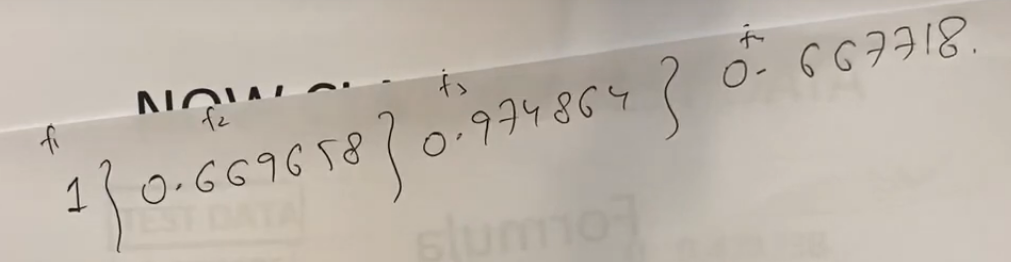 f1 f2 f3 f4
1 } 0.669658 } 0.974864 } 0.667718.
TEST DATA
Formula